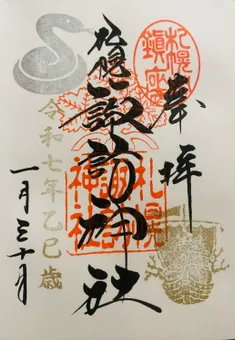 奉拝
札幌
鎮座
札幌
諏訪神社
札幌
諏訪
神社
令和七年乙巳歳
一月三十日